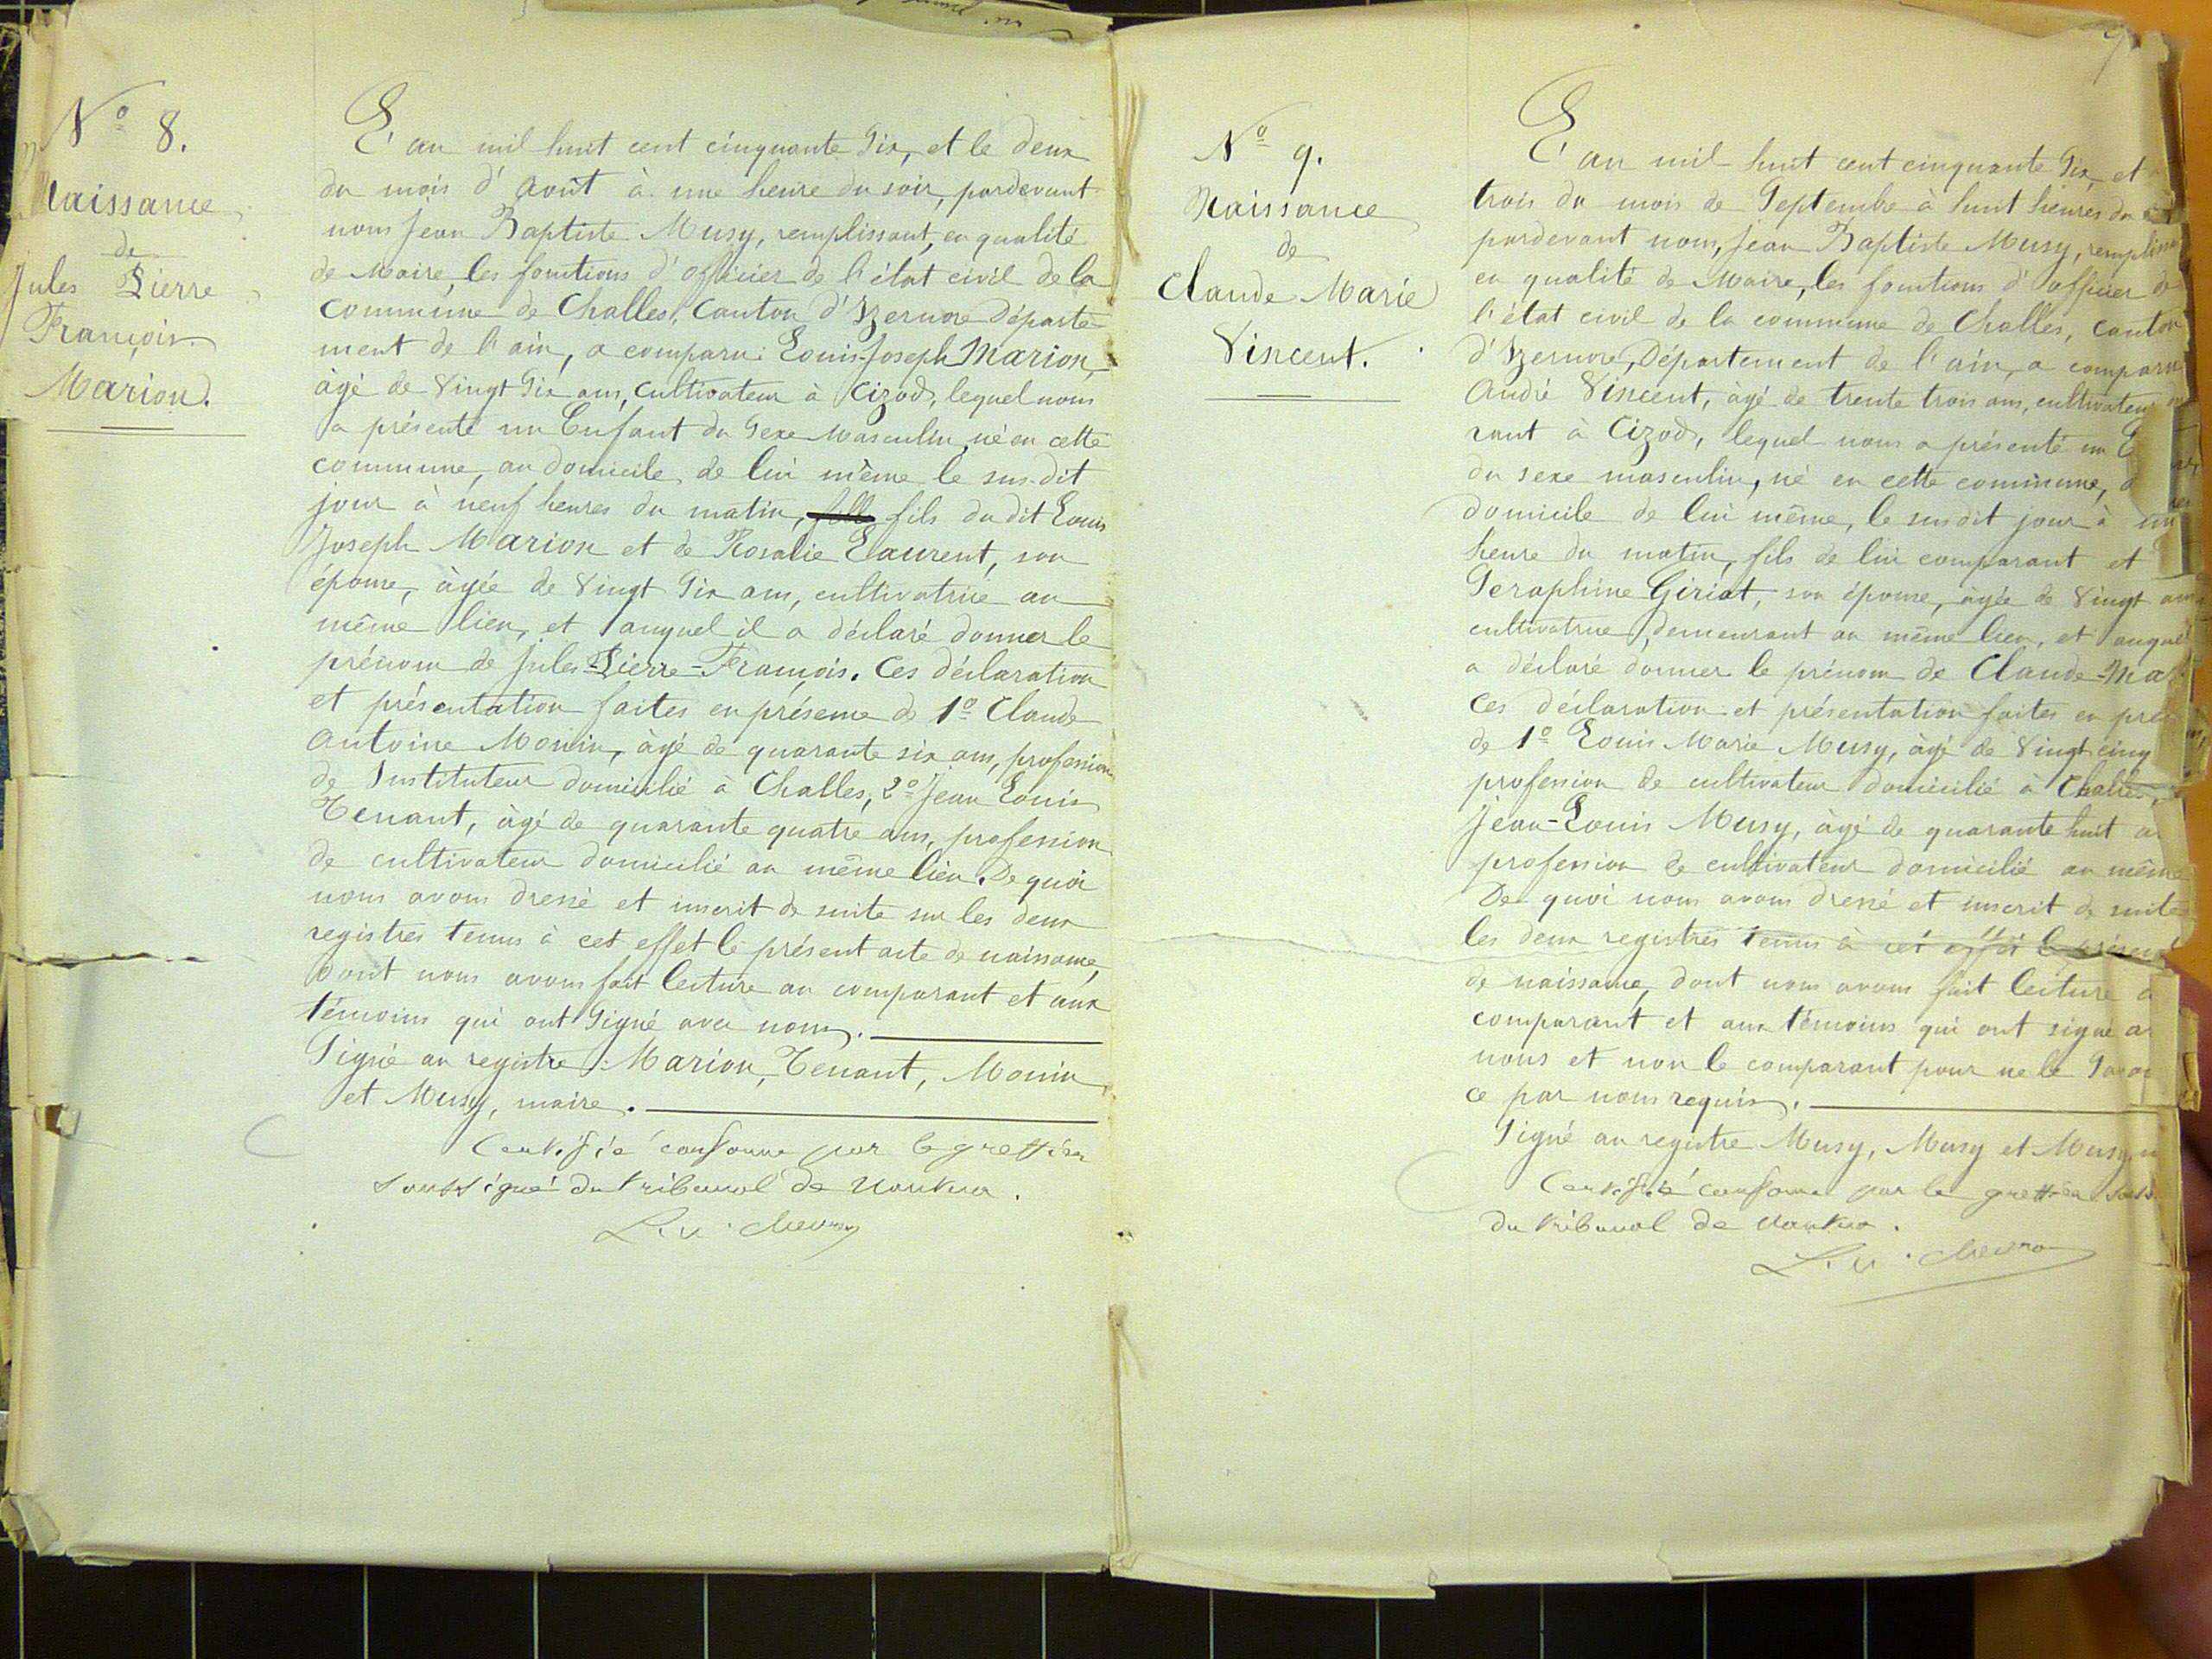 N° 8.
Naissance
de
Jules Pierre
François
Marion.
L'an mil huit cent cinquante Six, et le deux
du mois d'Août à une heure du soir, pardevant
nous Jean Baptiste Musy, remplissant, en qualité
de Maire, les fonctions d'officier de l'état civil de la
Commune de Challes, Canton d'Izernore Départe-
ment de l'ain, a comparu: Louis-Joseph Marion,
âgé de Vingt Six ans, cultivateur à Cizod, lequel nous
a présenté un Enfant du Sexe Masculin, né en cette
commune, au domicile de lui même le sus-dit
jour à neuf heures du matin, fille fils du dit Louis
Joseph Marion et de Rosalie Laurent, son
épouse, âgée de Vingt Six ans, cultivatrice au
même lieu, et auquel il a déclaré donner le
prénom de Jules-Pierre-François. Ces déclaration
et présentation faites en présence de 1° Claude
Antoine Monin, âgé de quarante six ans, profession
de Instituteur domicilié à Challes, 2° Jean Louis
Tenant, âgé de quarante quatre ans, profession
de cultivateur domicilié au même lieu. De quoi
nous avons dressé et inscrit de suite sur les deux
registres tenus à cet effet le présent acte de naissance,
dont nous avons fait lecture au comparant et aux
témoins qui ont Signé avec nous.
Signé au registre: Marion, Tenant, Monin
et Musy, maire.
Certifié conforme par le greffier
soussigné du tribunal de Nantua.
N° 9.
Naissance
de
Claude Marie
Vincent.
L'an mil huit cent cinquante Six, et
trois du mois de Septembre à huit heures du
pardevant nous, Jean Baptiste Musy, remplissa
en qualité de Maire, les fonctions d'officier de
l'état civil de la commune de Challes, canton
d'Izernore, Département de l'ain, a comparu
André Vincent, âgé de trente trois ans, cultivateur
rant à Cizod, lequel nous a présenté un E
du sexe masculin, né en cette commune, a
domicile de lui même, le susdit jour à un
heure du matin, fils de lui comparant et
Séraphine Giriat, son épouse, âgée de Vingt ans
cultivatrice, demeurant au même lieu, et auquel
a déclaré donner le prénom de Claude-Mar
Ces déclaration et présentation faites en pré
de 1° Louis Marie Musy, âgé de Vingt cinq
profession de cultivateur domicilié à Challes,
Jean-Louis Musy, âgé de quarante huit a
profession de cultivateur domicilié au même
De quoi nous avons dressé et inscrit de suite
les deux registres tenus à cet effet le présent
de naissance, dont nous avons fait lecture a
comparant et aux témoins qui ont signé a
nous et non le comparant pour ne le Savo
ce par nous requis.
Signé au registre Musy, Musy et Musy,
Certifié conforme par le greffier sous
du tribunal de Nantua.